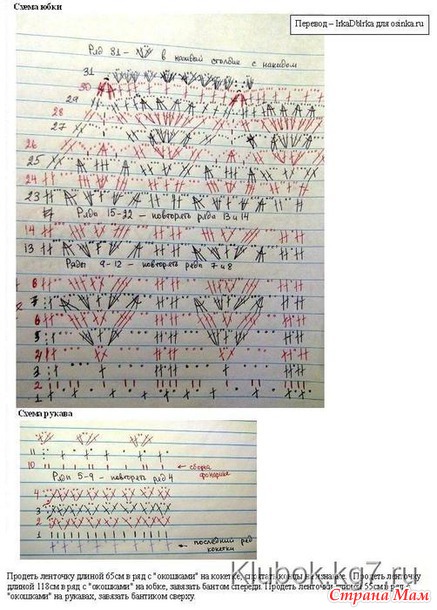 Схема юбки
Перевод – IrkaDbIrka для osinka.ru
Ряд 31 – в каждый столбик с накидом
31
30
29
28
27
26
25
24
23
Ряды 15-22 – повторять ряды 13 и 14
14
13
Ряды 9-12 – повторять ряды 7 и 8
8
7
6
5
4
3
2
1
Схема рукава
11
10
сборка фонарика
Ряды 5-9 – повторять ряд 4
4
3
2
1
последний ряд кокетки
Продеть ленточку длиной 65см в ряд с "окошками" на кокетке, Продеть ленточку
длиной 118см в ряд с "окошками" на юбке, завязать бантом спереди. Продеть 55см в ряд с
"окошками" на рукавах, завязать бантиком сверху.
Klubok.kg7.ru
Страна Мам